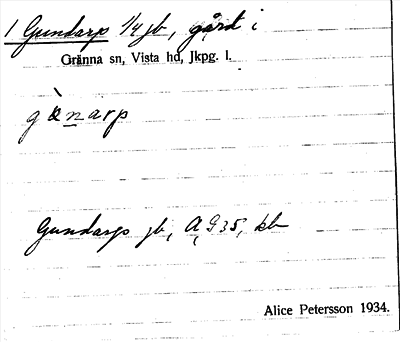 1 Gundarp 1/4 jb, gård i
Gränna sn, Vista hd, Jkpg. l.
Gundarps jb, A G 35, kb
Alice Petersson 1934.